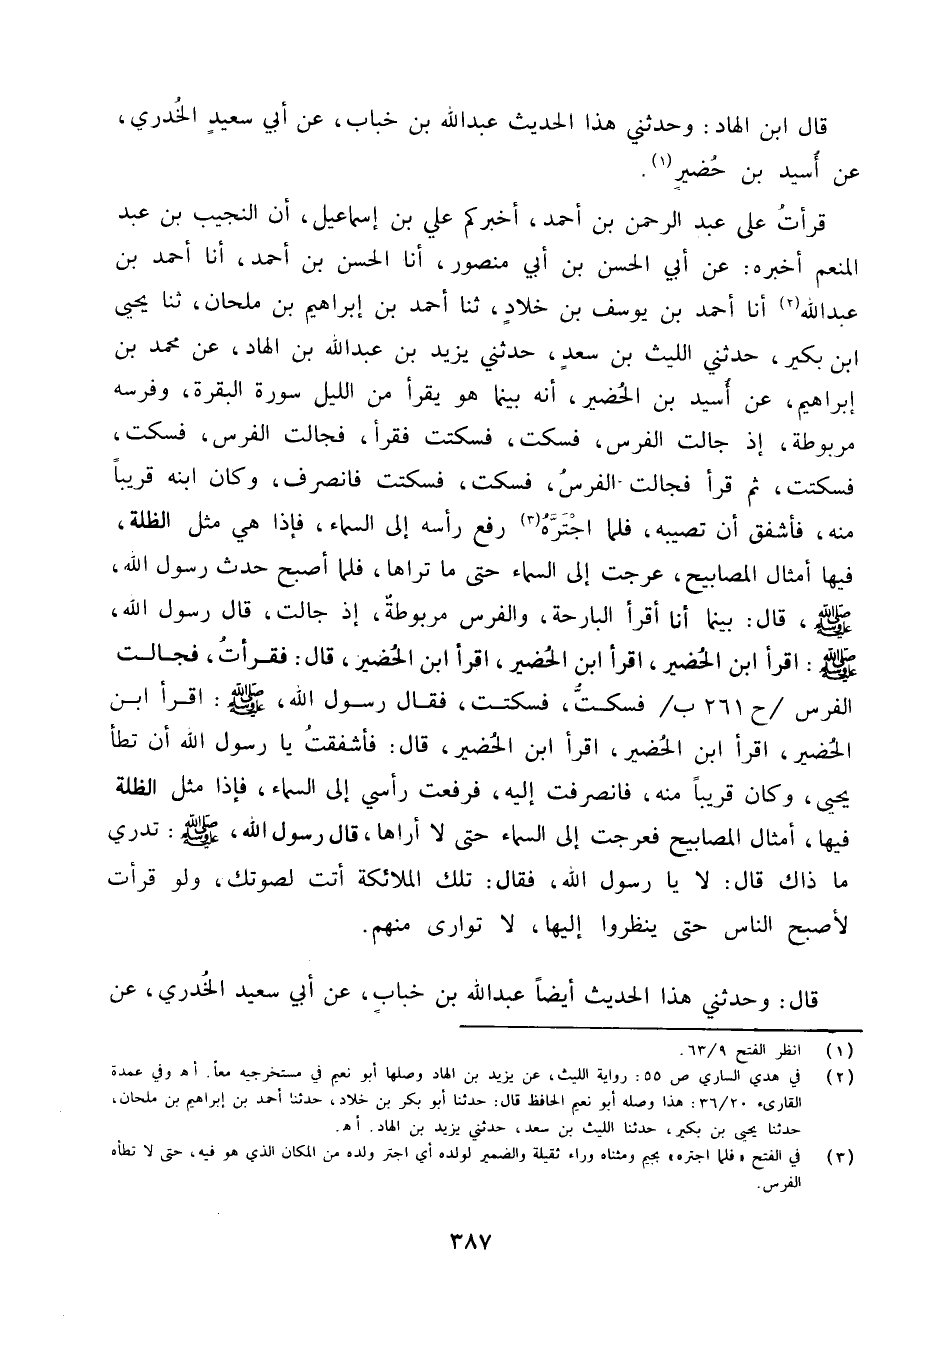 قال ابن الهاد: وحدثني هذا الحديث عبدالله بن خباب، عن أبي سعيدٍ الخُدري،
عن أُسيد بن حُضيرٍ(١).
قرأتُ على عبد الرحمن بن أحمد، أخبركم علي بن إسماعيل، أن النجيب بن عبد
المنعم أخبره: عن أبي الحسن بن أبي منصور، أنا الحسن بن أحمد، أنا أحمد بن
عبدالله(٢) أنا أحمد بن يوسف بن خلادٍ، ثنا أحمد بن إبراهيم بن ملحان، ثنا يحيى
ابن بكير، حدثني الليث بن سعدٍ، حدثني يزيد بن عبدالله بن الهاد، عن محمد بن
إبراهيم، عن أُسيد بن الحُضير، أنه بينما هو يقرأ من الليل سورة البقرة، وفرسه
مربوطة، إذ جالت الفرس، فسكت، فسكتت فقرأ، فجالت الفرس، فسكت،
فسكتت، ثم قرأ فجالت الفرسُ، فسكت، فسكتت فانصرف، وكان ابنه قريباً
منه، فأشفق أن تصيبه، فلما اجْتَرَّهُ(٣) رفع رأسه إلى السماء، فإذا هي مثل الظلة،
فيها أمثال المصابيح، عرجت إلى السماء حتى ما تراها، فلما أصبح حدث رسول الله،
ﷺ، قال: بينما أنا أقرأ البارحة، والفرس مربوطةٌ، إذ جالت، قال رسول الله،
ﷺ: اقرأ ابن الحُضير، اقرأ ابن الحُضير، اقرأ ابن الحُضير، قال: فقرأتُ، فجالت
الفرس /ح ٢٦١ ب/ فسكتُّ، فسكتت، فقال رسول الله، ﷺ: اقرأ ابن
الحُضير، اقرأ ابن الحُضير، اقرأ ابن الحُضير، قال: فأشفقتُ يا رسول الله أن تطأ
يحيى، وكان قريباً منه، فانصرفت إليه، فرفعت رأسي إلى السماء، فإذا مثل الظلة
فيها، أمثال المصابيح فعرجت إلى السماء حتى لا أراها، قال رسول الله، ﷺ: تدري
ما ذاك قال: لا يا رسول الله، فقال: تلك الملائكة أتت لصوتك، ولو قرأت
لأصبح الناس حتى ينظروا إليها، لا توارى منهم.
قال: وحدثني هذا الحديث أيضاً عبدالله بن خبابٍ، عن أبي سعيد الخُدري، عن
(١) انظر الفتح ٦٣/٩.
(٢) في هدي الساري ص ٥٥: رواية الليث، عن يزيد بن الهاد وصلها أبو نعيم في مستخرجيه معاً. أه وفي عمدة
القارىء ٣٦/٢٠: هذا وصله أبو نعيم الحافظ قال: حدثنا أبو بكر بن خلاد، حدثنا أحمد بن إبراهيم بن ملحان،
حدثنا يحيى بن بكير، حدثنا الليث بن سعد، حدثني يزيد بن الهاد. أه.
(٣) في الفتح «فلما اجتره» بجيم ومثناه وراء ثقيلة والضمير لولده أي اجتر ولده من المكان الذي هو فيه، حتى لا تطأه
الفرس.
٣٨٧